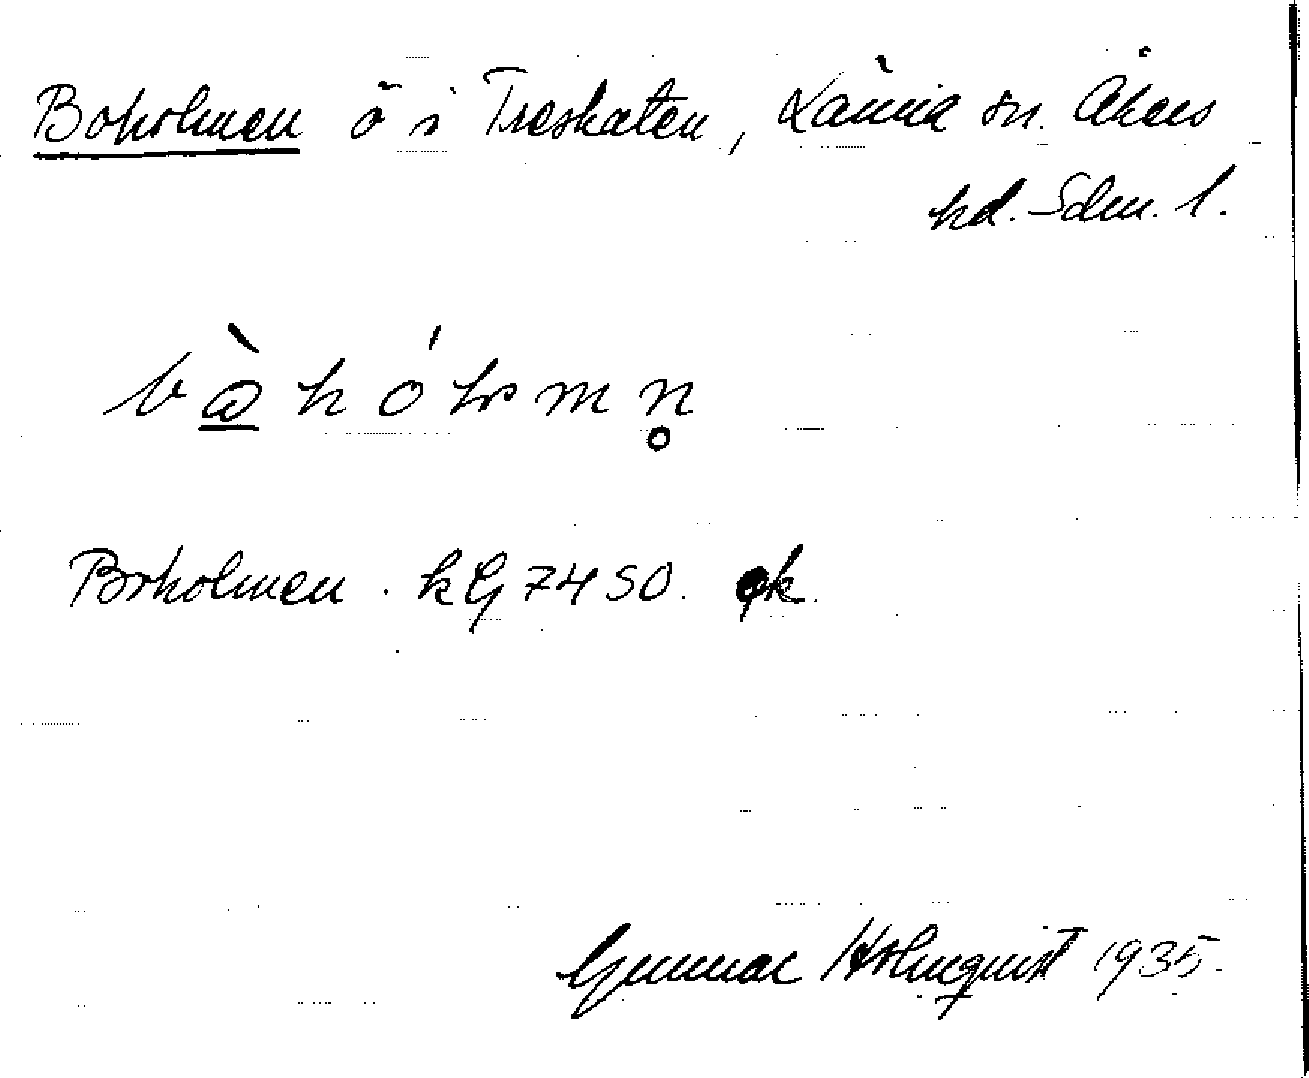 Boholmen ö i Treskaten, Länna sn. Åkers
hd. Sdm. l.
bòhólmn̥
Boholmen. kG 7450. ek.
Gunnar Holmquist 1935.